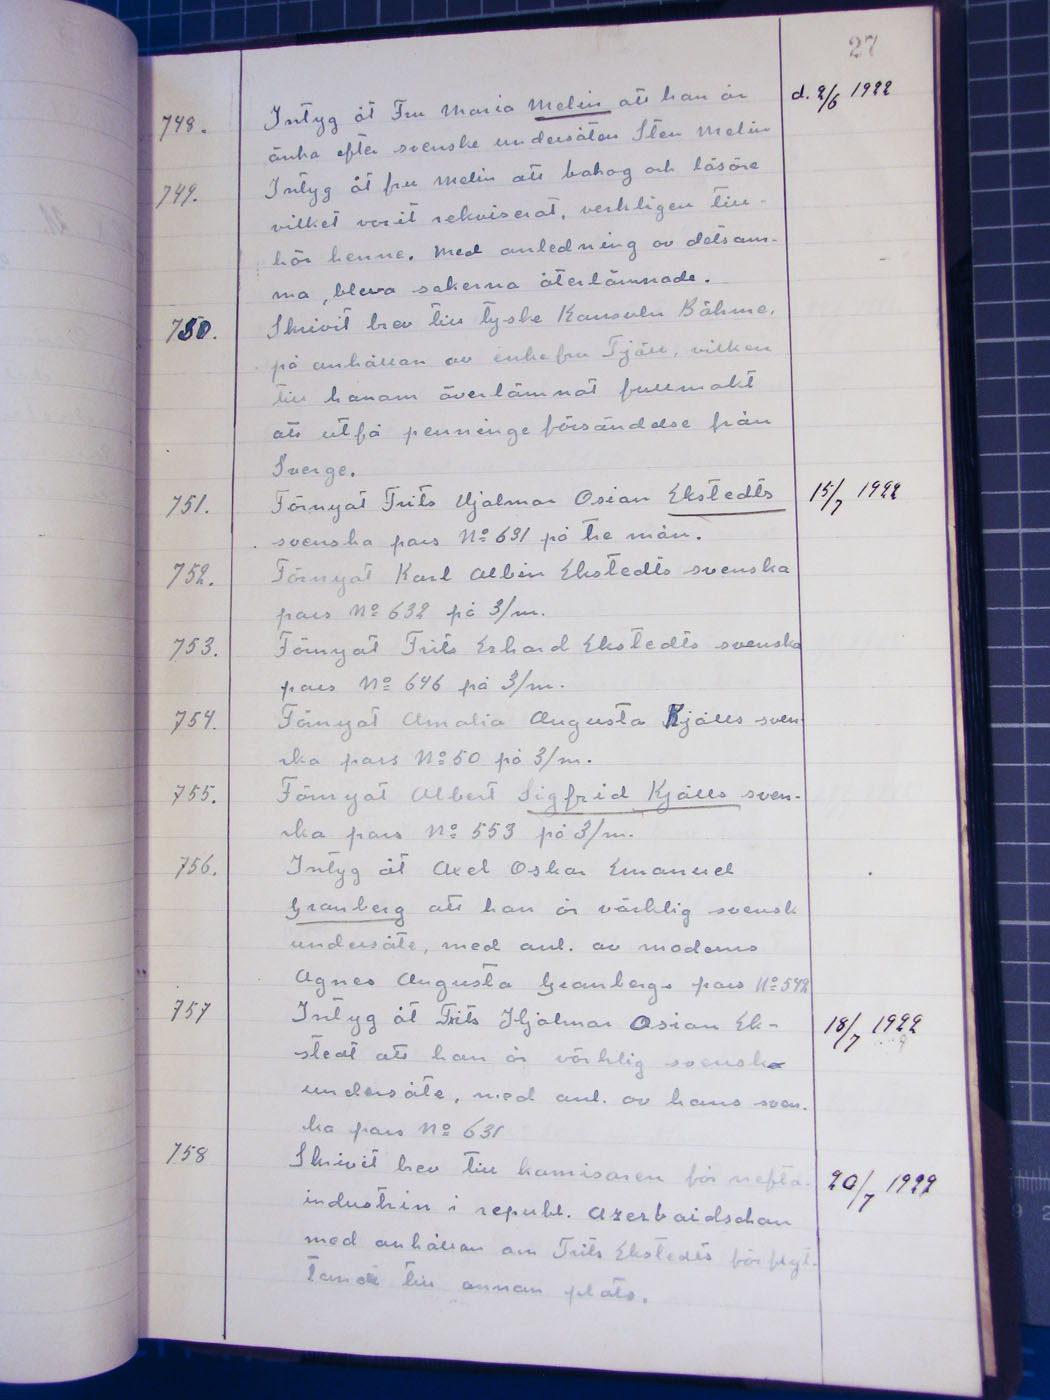 27
748. Intyg åt Fru Maria Melin att han är d. 2/6 1922
änka efter svenske undersåten Sten Melin
749. Intyg åt fru Melin att bohag och lösöre
vilket varit rekviserat, verkligen till-
hör henne. Med anledning av detsam-
ma, bleva sakerna återlämnade.
750. Skrivit brev till tyske Konsuln Böhme,
på anhållan av enkefru Tjäll, vilken
till honom överlämnat fullmakt
att utfå penningeförsändelse från
Sverge.
751. Förnyat Frits Hjalmar Osian Ekstedts 15/7 1922
svenska pass No 631 på tre mån.
752. Förnyat Karl Albin Ekstedts svenska
pass No 632 på 3/m.
753. Förnyat Frits Erhard Ekstedts svenska
pass No 646 på 3/m.
754. Förnyat Amalia Augusta Kjälls sven-
ska pass No 50 på 3/m.
755. Förnyat Albert Sigfrid Kjälls sven-
ska pass No 553 på 3/m.
756. Intyg åt Axel Oskar Emanuel
Granberg att han är värklig svensk
undersåte, med anl. av moderns
Agnes Augusta Granbergs pass No 542
757 Intyg åt Frits Hjalmar Osian Ek- 18/7 1922
stedt att han är värklig svenska
undersåte, med anl. av hans sven-
ka pass No 631
758 Skrivit brev till komisaren för nefta- 20/7 1922
industrin i republ. Azerbaidschan
med anhållan om Frits Ekstedts förflyt-
tande till annan plats.